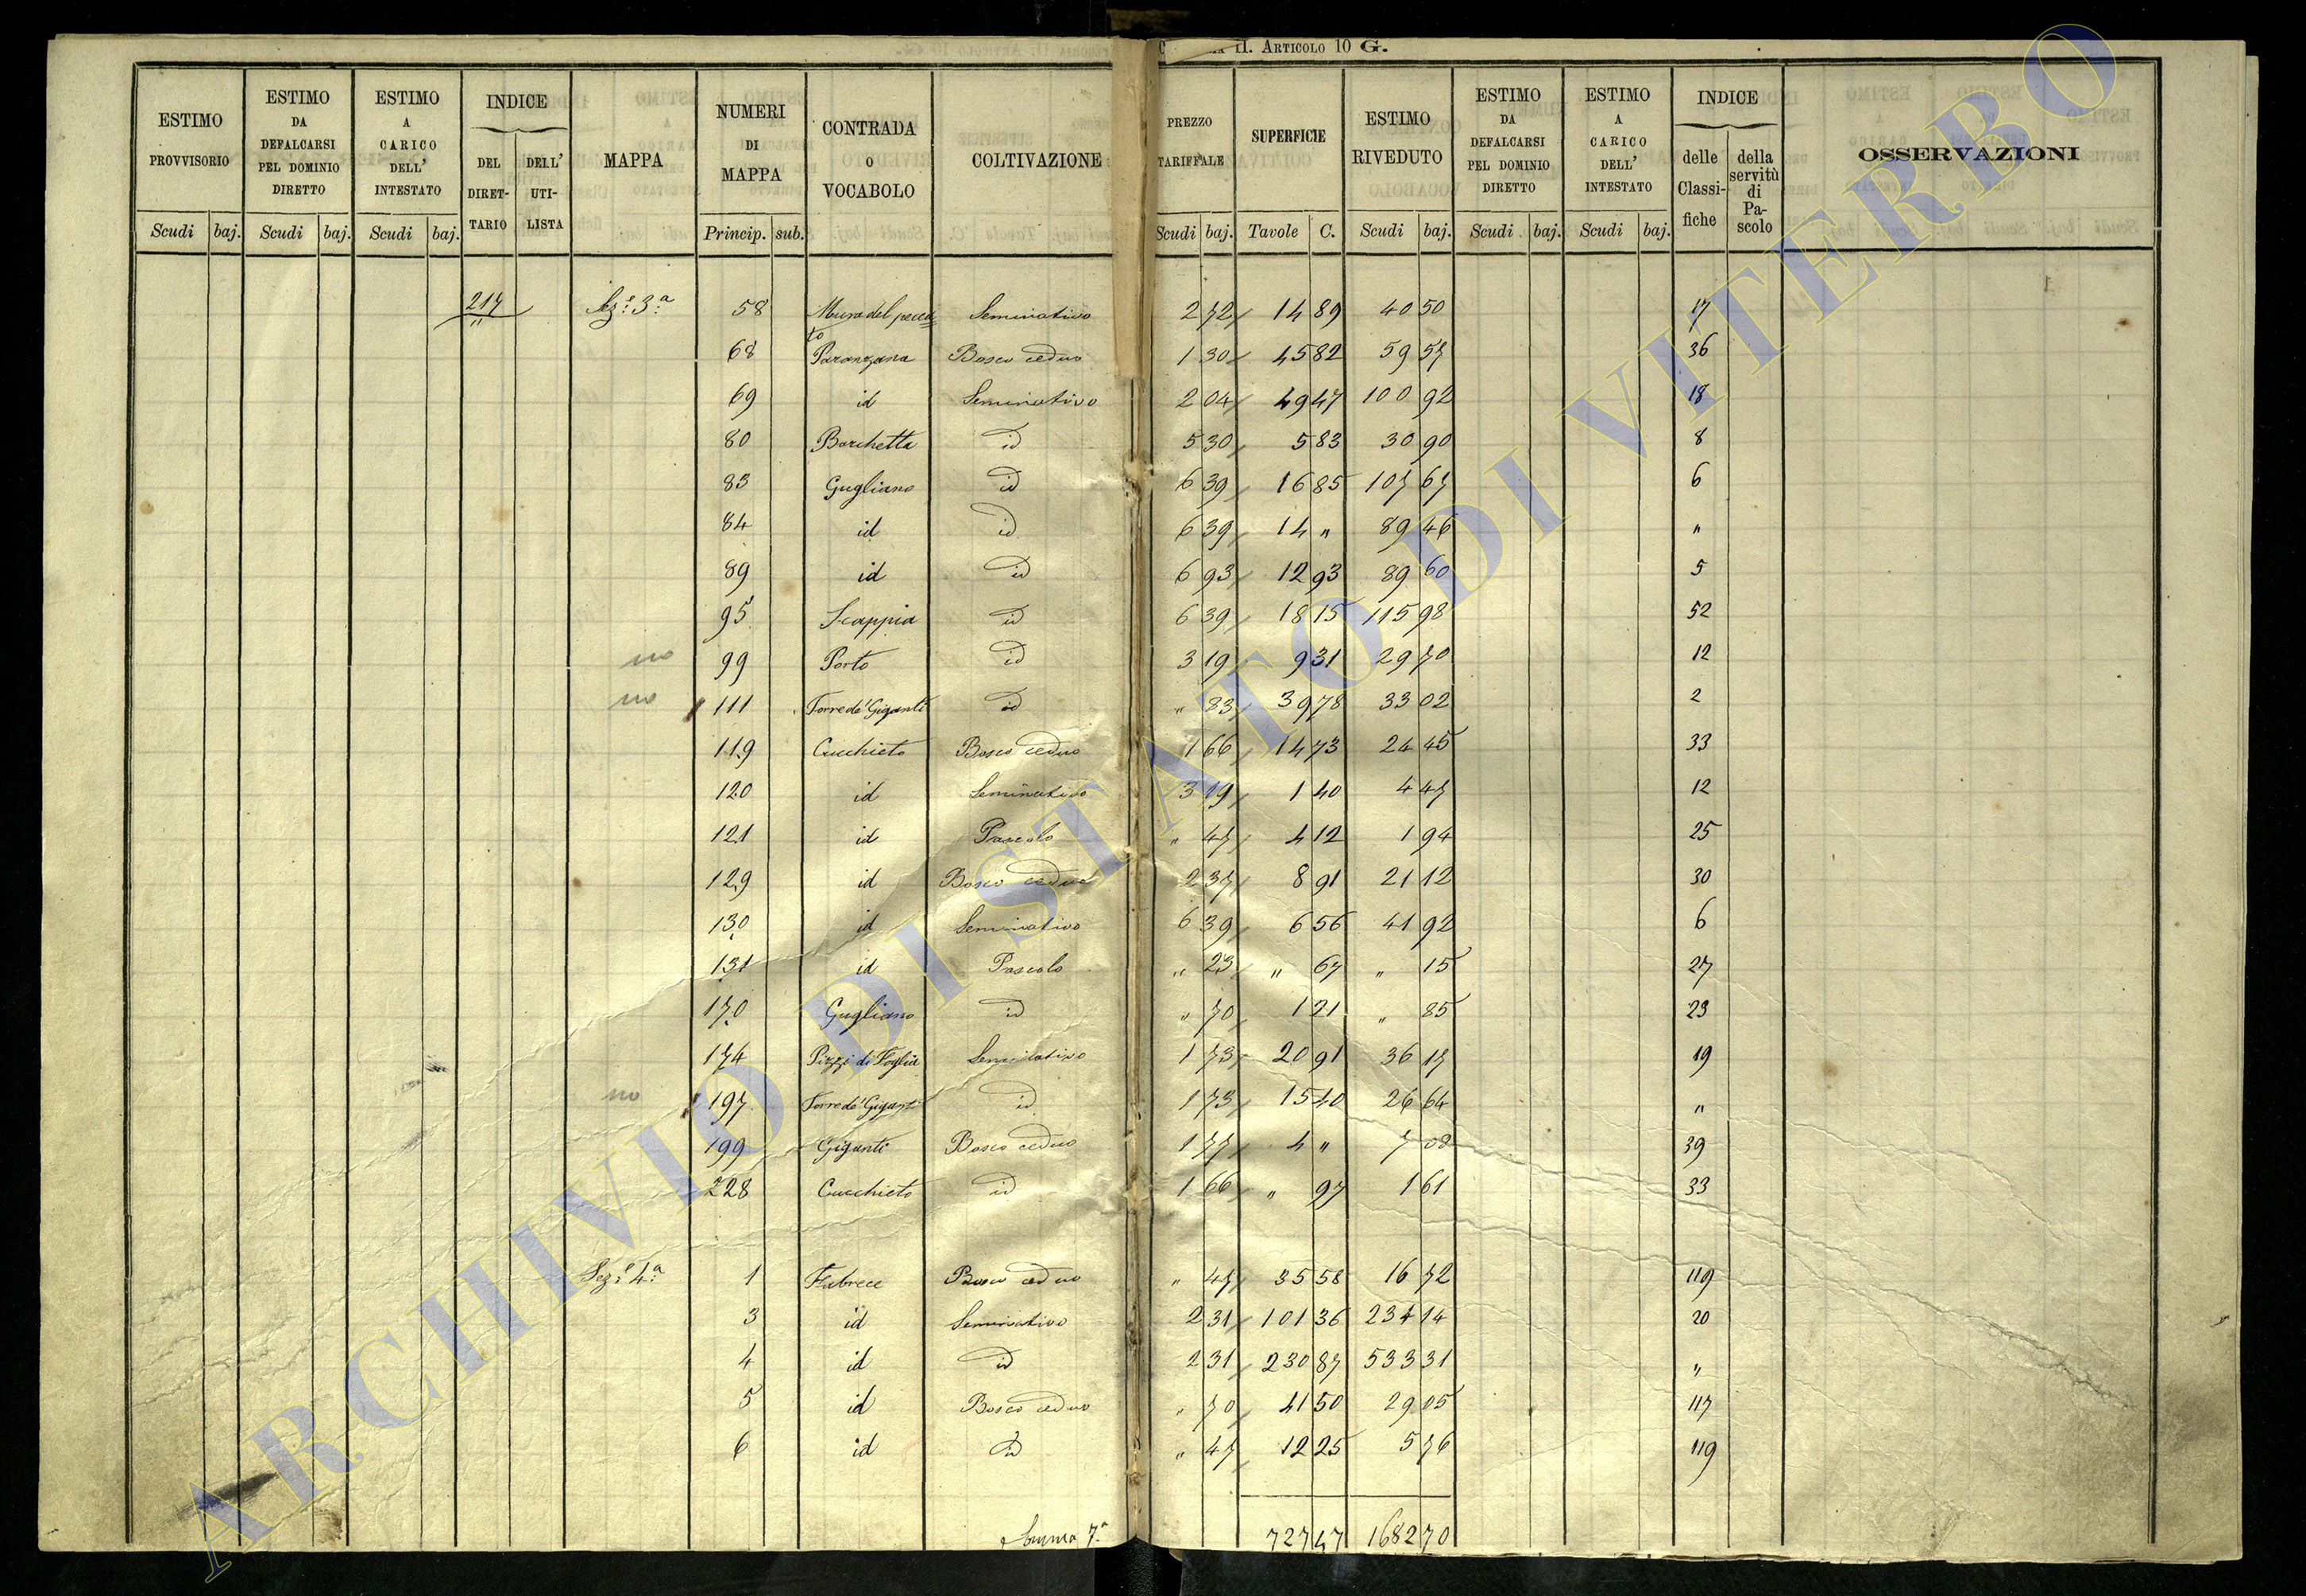 II. ARTICOLO 10 G.
ESTIMO PROVVISORIO Scudi baj.
ESTIMO DA DEFALCARSI PEL DOMINIO DIRETTO Scudi baj.
ESTIMO A CARICO DELL' INTESTATO Scudi baj.
INDICE DEL DIRET-TARIO DELL' UTI-LISTA
MAPPA
NUMERI DI MAPPA Princip. sub.
CONTRADA O VOCABOLO
COLTIVAZIONE
PREZZO TARIFFALE Scudi baj.
SUPERFICIE Tavole C.
ESTIMO RIVEDUTO Scudi baj.
ESTIMO DA DEFALCARSI PEL DOMINIO DIRETTO Scudi baj.
ESTIMO A CARICO DELL' INTESTATO Scudi baj.
INDICE delle Classi-fiche della servitù di Pa-scolo
OSSERVAZIONI
217 Sez.e 3.a 58 Mura del pecca= to Seminativo 2 72 14 89 40 50 17
68 Paranzana Bosco ceduo 1 30 45 82 59 57 36
69 id Seminativo 2 04 49 47 100 92 18
80 Barchetta id 5 30 5 83 30 90 8
83 Gugliano id 6 39 16 85 107 67 6
84 id id 6 39 14 " 89 46 "
89 id id 6 93 12 93 89 60 5
95 Scappia id 6 39 18 15 115 98 52
no 99 Porto id 3 19 9 31 29 70 12
no 111 Torre de' Giganti id " 83 39 78 33 02 2
119 Cucchieto Bosco ceduo 1 66 14 73 24 45 33
120 id Seminativo 3 19 1 40 4 47 12
121 id Pascolo " 47 4 12 1 94 25
129 id Bosco ceduo 2 37 8 91 21 12 30
130 id Seminativo 6 39 6 56 41 92 6
131 id Pascolo " 23 " 67 " 15 27
170 Gugliano id " 70 1 21 " 85 23
174 Pizzi di Foglia Seminativo 1 73 20 91 36 17 19
no 197 Torre de' Giganti id 1 73 15 40 26 64 "
199 Giganti Bosco ceduo 1 77 4 " 7 08 39
228 Cucchieto id 1 66 " 97 1 61 33
Sez.e 4.a 1 Fabrece Bosco ceduo " 47 35 58 16 72 119
3 id Seminativo 2 31 101 36 234 14 20
4 id id 2 31 230 87 533 31 "
5 id Bosco ceduo " 70 41 50 29 05 117
6 id id " 47 12 25 5 76 119
Somma 7.a 727 47 1682 70
ARCHIVIO DI STATO DI VITERBO